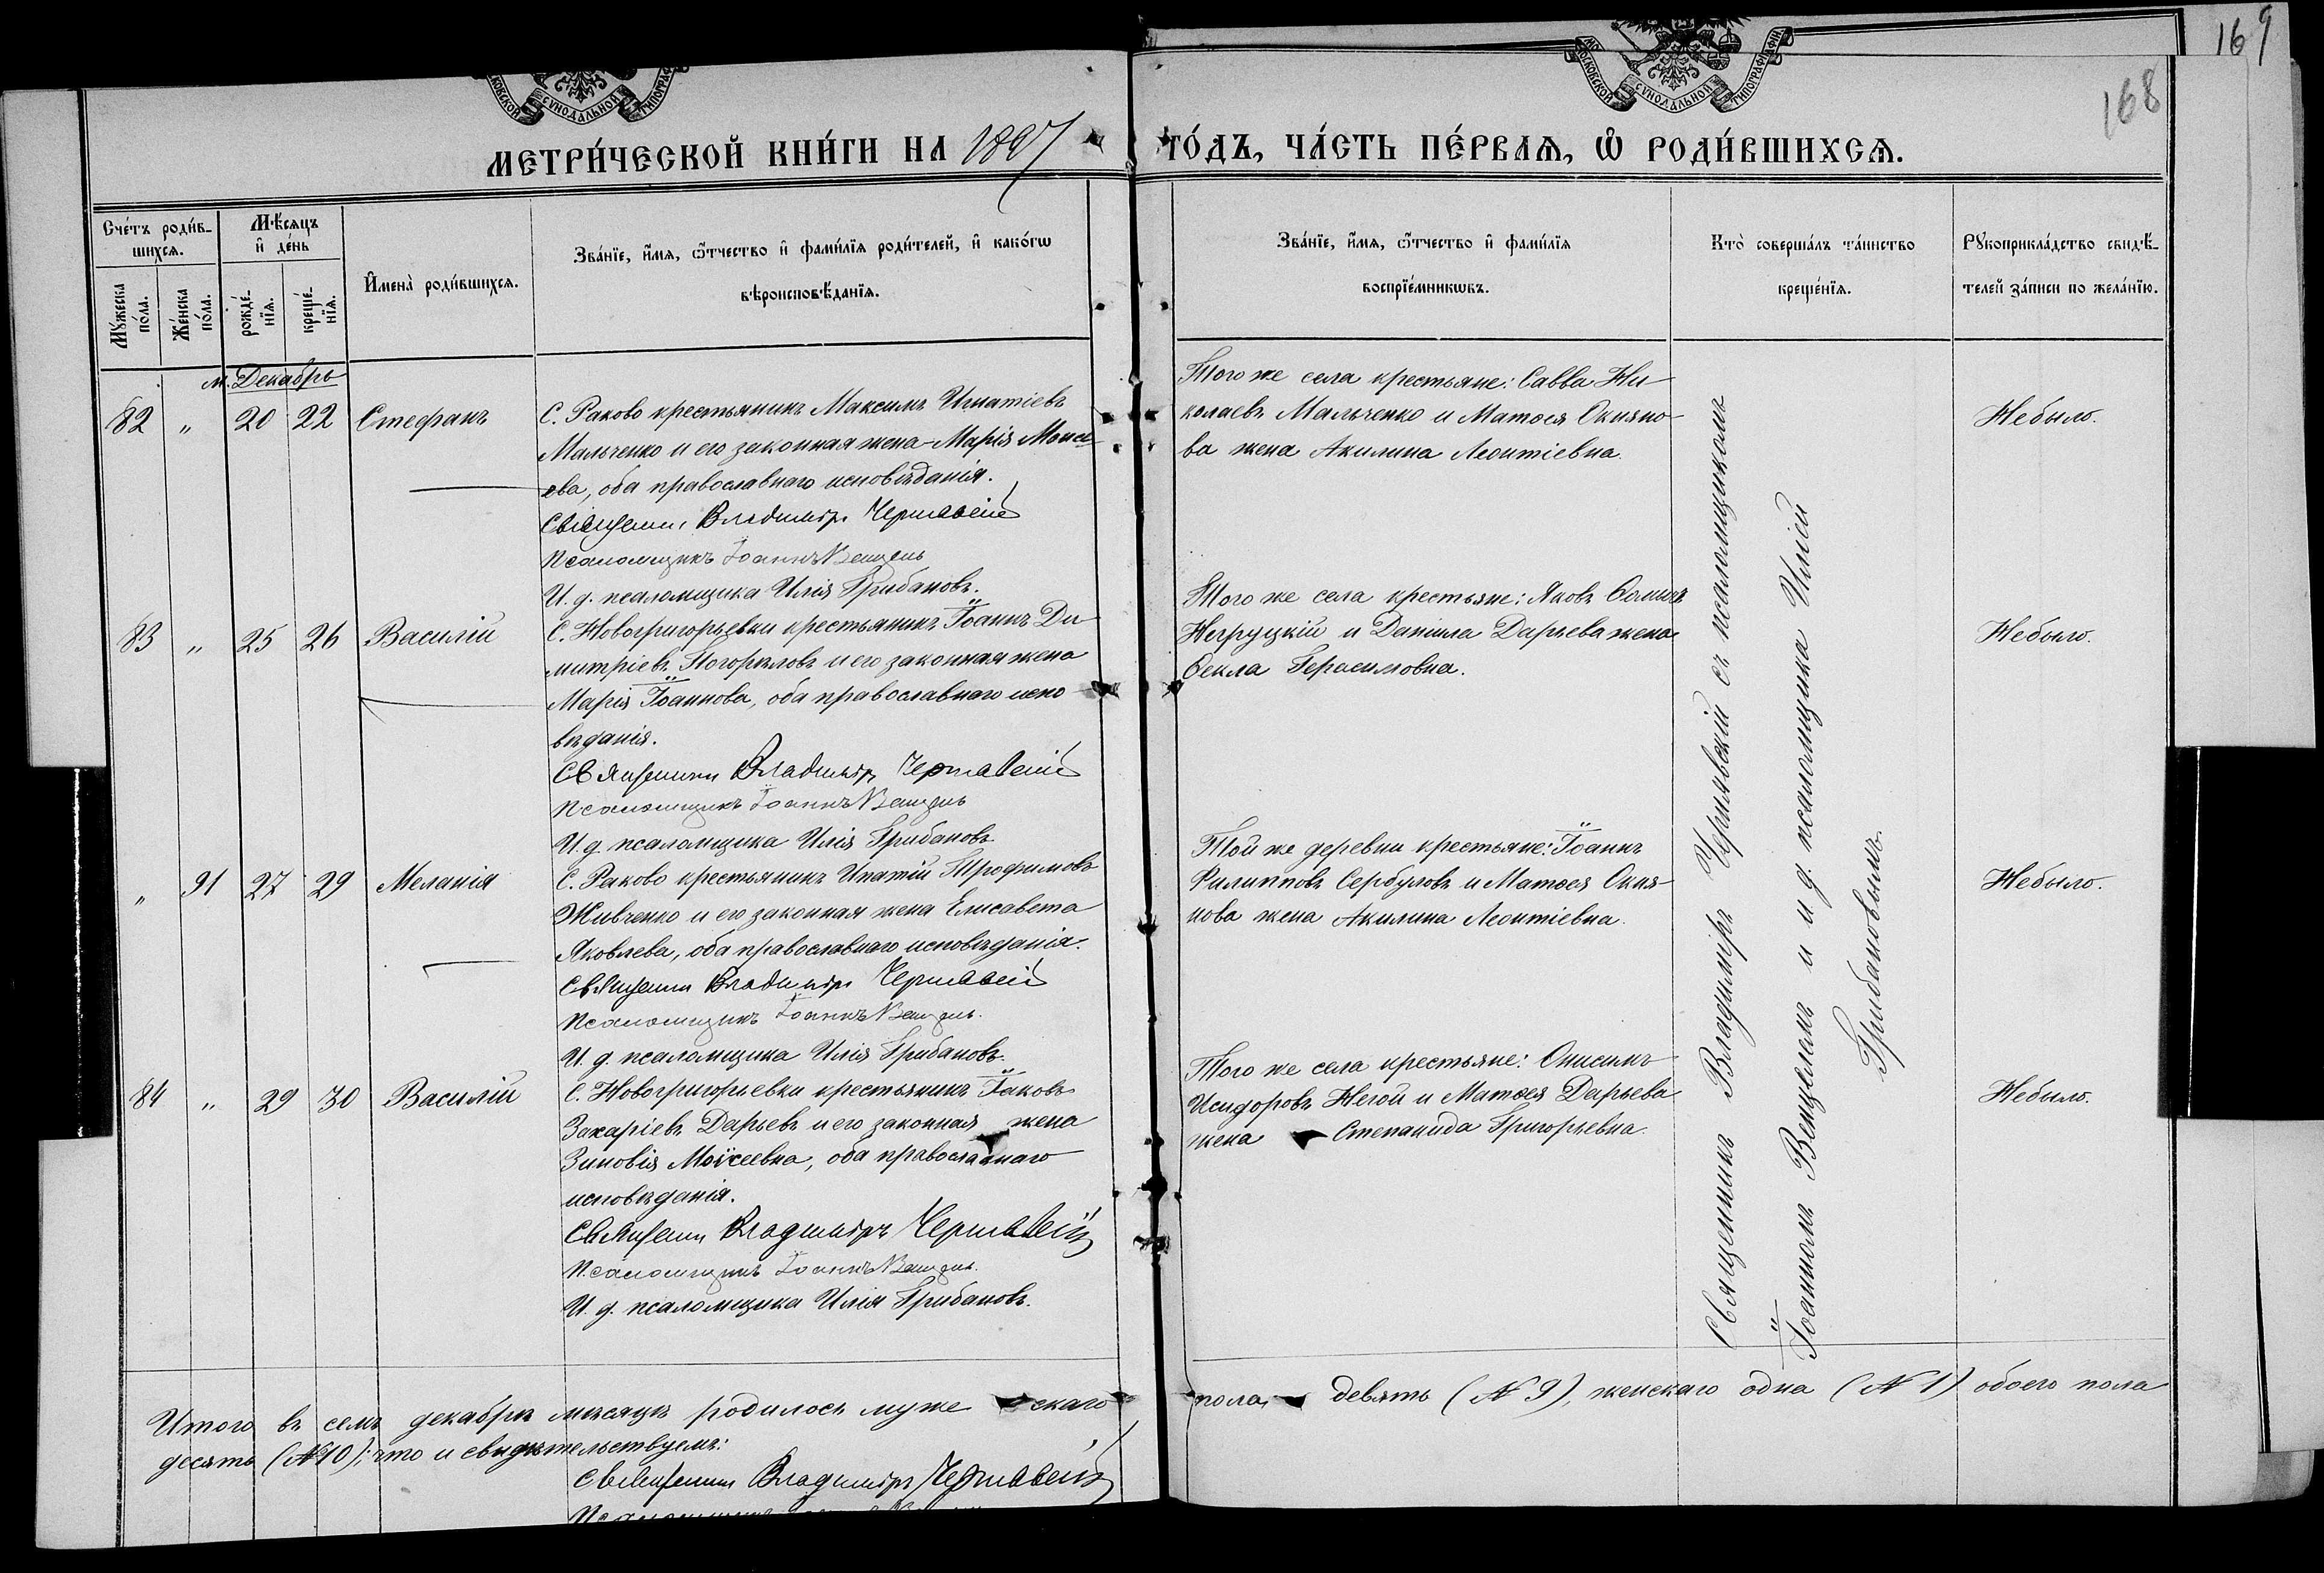 169
168
МОСКОВСКОЙ СѴНОДАЛЬНОЙ ТИПОГРАФІИ
МЕТРИ́ЧЕСКОЙ КНИ́ГИ НА 1897 ГО́ДЪ, ЧА́СТЬ ПЕ́РВАѦ, Ѡ҆ РОДИ́ВШИХСѦ.
Сче́тъ роди́в-
шихсѧ.
Мꙋжеска по́ла.
Же́нска по́ла.
Мѣ́сѧцъ
и҆ де́нь
рожде́-
нїѧ.
креще́-
нїѧ.
И҆мена̀ роди́вшихсѧ.
Зва́нїе, и҆́мѧ, ѻ҆́тчество и҆ фами́лїѧ роди́телей, и҆ како́гѡ
вѣроисповѣ́данїѧ.
Зва́нїе, и҆́мѧ, ѻ҆́тчество и҆ фами́лїѧ
воспрїе́мникѡвъ.
Кто̀ соверша́лъ та́инство
креще́нїѧ.
Рꙋкоприкла́дство свидѣ́-
телей за́писи по жела́нїю.
м. Декабрь
82 " 20 22 Стефанъ
С. Раково крестьянинъ Максимъ Игнатіевъ
Мальченко и его законная жена Марія Моисе
ева, оба православнаго исповѣданія.
Священни. Владиміръ Чернявскій
Псаломщикъ Іоаннъ Венцель
И. д. псаломщика Илія Грибановъ.
Того же села крестьяне: Савва Ни-
колаевъ Мальченко и Матѳея Окияно-
ва жена Акилина Леонтіевна.
Небыло.
83 " 25 26 Василій
С. Новогригорьевки крестьянинъ Іоаннъ Ди-
митріевъ Погорѣловъ и его законная жена
Марія Іоаннова, оба православнаго испо-
вѣданія.
Священникъ Владиміръ Чернявскій
Псаломщикъ Іоаннъ Венцель
И. д. псаломщика Илія Грибановъ
Того же села крестьяне: Яковъ Ѳоминъ
Негруцкій и Даніила Дарьева жена
Ѳекла Герасимовна.
Небыло.
" 91 27 29 Меланія
С. Раково крестьянинъ Ипатій Трофимовъ
Живченко и его законная жена Елисавета
Яковлева, оба православнаго исповѣданія.
Священни Владиміръ Чернявскій
Псаломщикъ Іоаннъ Венцель.
И. д. псаломщика Илія Грибановъ.
Той же деревни крестьяне: Іоаннъ
Филипповъ Сербуловъ и Матѳея Окия-
нова жена Акилина Леонтіевна.
Небыло.
84 " 29 30 Василій
С. Новогригорьевки крестьянинъ Іаковъ
Захаріевъ Дарьевъ и его законная жена
Зиновія Моїсеевна, оба православнаго
исповѣданія.
Священни Владиміръ Чернявскій
Псаломщикъ Іоаннъ Венцель.
И. д. псаломщика Илія Грибановъ.
Того же села крестьяне: Онисимъ
Исидоровъ Негой и Матѳея Дарьева
жена Степанида Григорьевна.
Небыло.
Священникъ Владиміръ Чернявскій съ псаломщикомъ
Іоанномъ Венцелемъ и и. д. псаломщика Иліей
Грибановымъ.
Итого въ семъ декабрѣ мѣсяцѣ родилось мужескаго пола девять (№ 9), женскаго одна (№ 1) обоего пола
десять (№10); что и свидѣтельствуемъ:
Священни Владиміръ Чернявскій